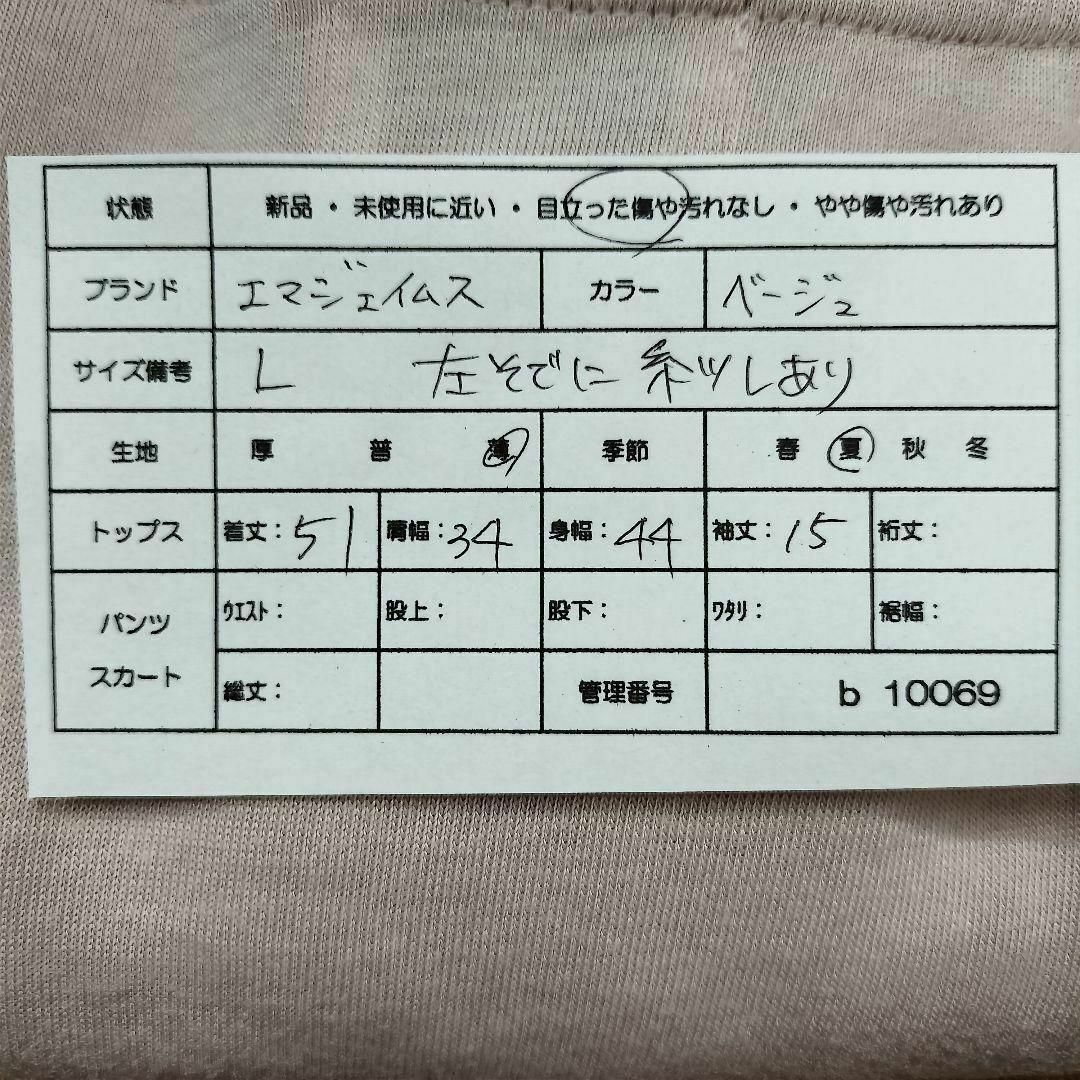 状態 新品・未使用に近い・目立った傷や汚れなし・やや傷や汚れあり
ブランド エマジェイムス カラー ベージュ
サイズ備考 L 左そでに糸ツレあり
生地 厚 普 薄 季節 春 夏 秋 冬
トップス 着丈：51 肩幅：34 身幅：44 袖丈：15 裄丈：
パンツ ウエスト： 股上： 股下： ワタリ： 裾幅：
スカート 総丈： 管理番号 b 10069